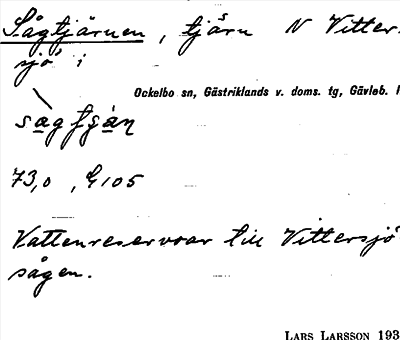 Sågtjärnen, tjärn N Vitter-
sjö i
Ockelbo sn, Gästriklands v. doms. tg, Gävleb.
73,0, G105
Vattenreservoar till Vittersjö
sågen.
LARS LARSSON 193